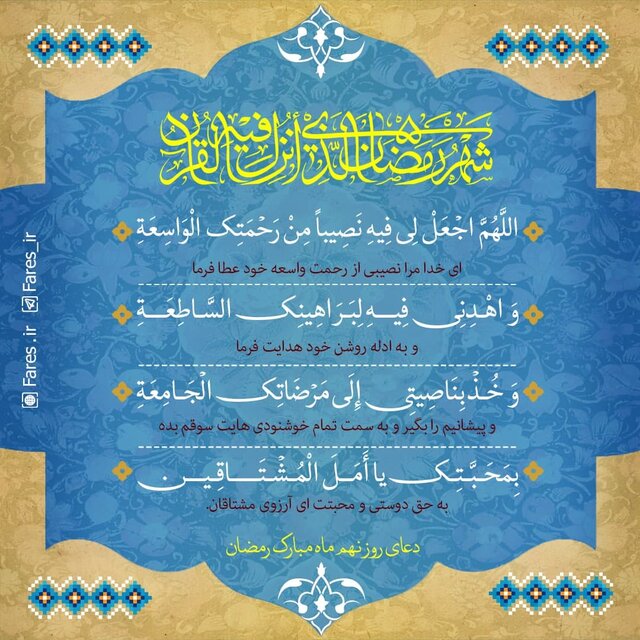 شهر رمضان الذي أنزل فيه القرآن
اللَّهُمَّ اجْعَلْ لِی فِیهِ نَصِیباً مِنْ رَحْمَتِکَ الْوَاسِعَةِ
ای خدا مرا نصیبی از رحمت واسعه خود عطا فرما
وَ اهْدِنِی فِیهِ لِبَرَاهِینِکَ السَّاطِعَةِ
و به ادله روشن خود هدایت فرما
وَ خُذْ بِنَاصِیَتِی إِلَى مَرْضَاتِکَ الْجَامِعَةِ
و پیشانیم را بگیر و به سمت تمام خوشنودی هایت سوقم بده
بِمَحَبَّتِکَ یا أَمَلَ الْمُشْتَاقِینَ
به حق دوستی و محبتت ای آرزوی مشتاقان.
دعای روز نهم ماه مبارک رمضان
Fares_ir
Fares.ir